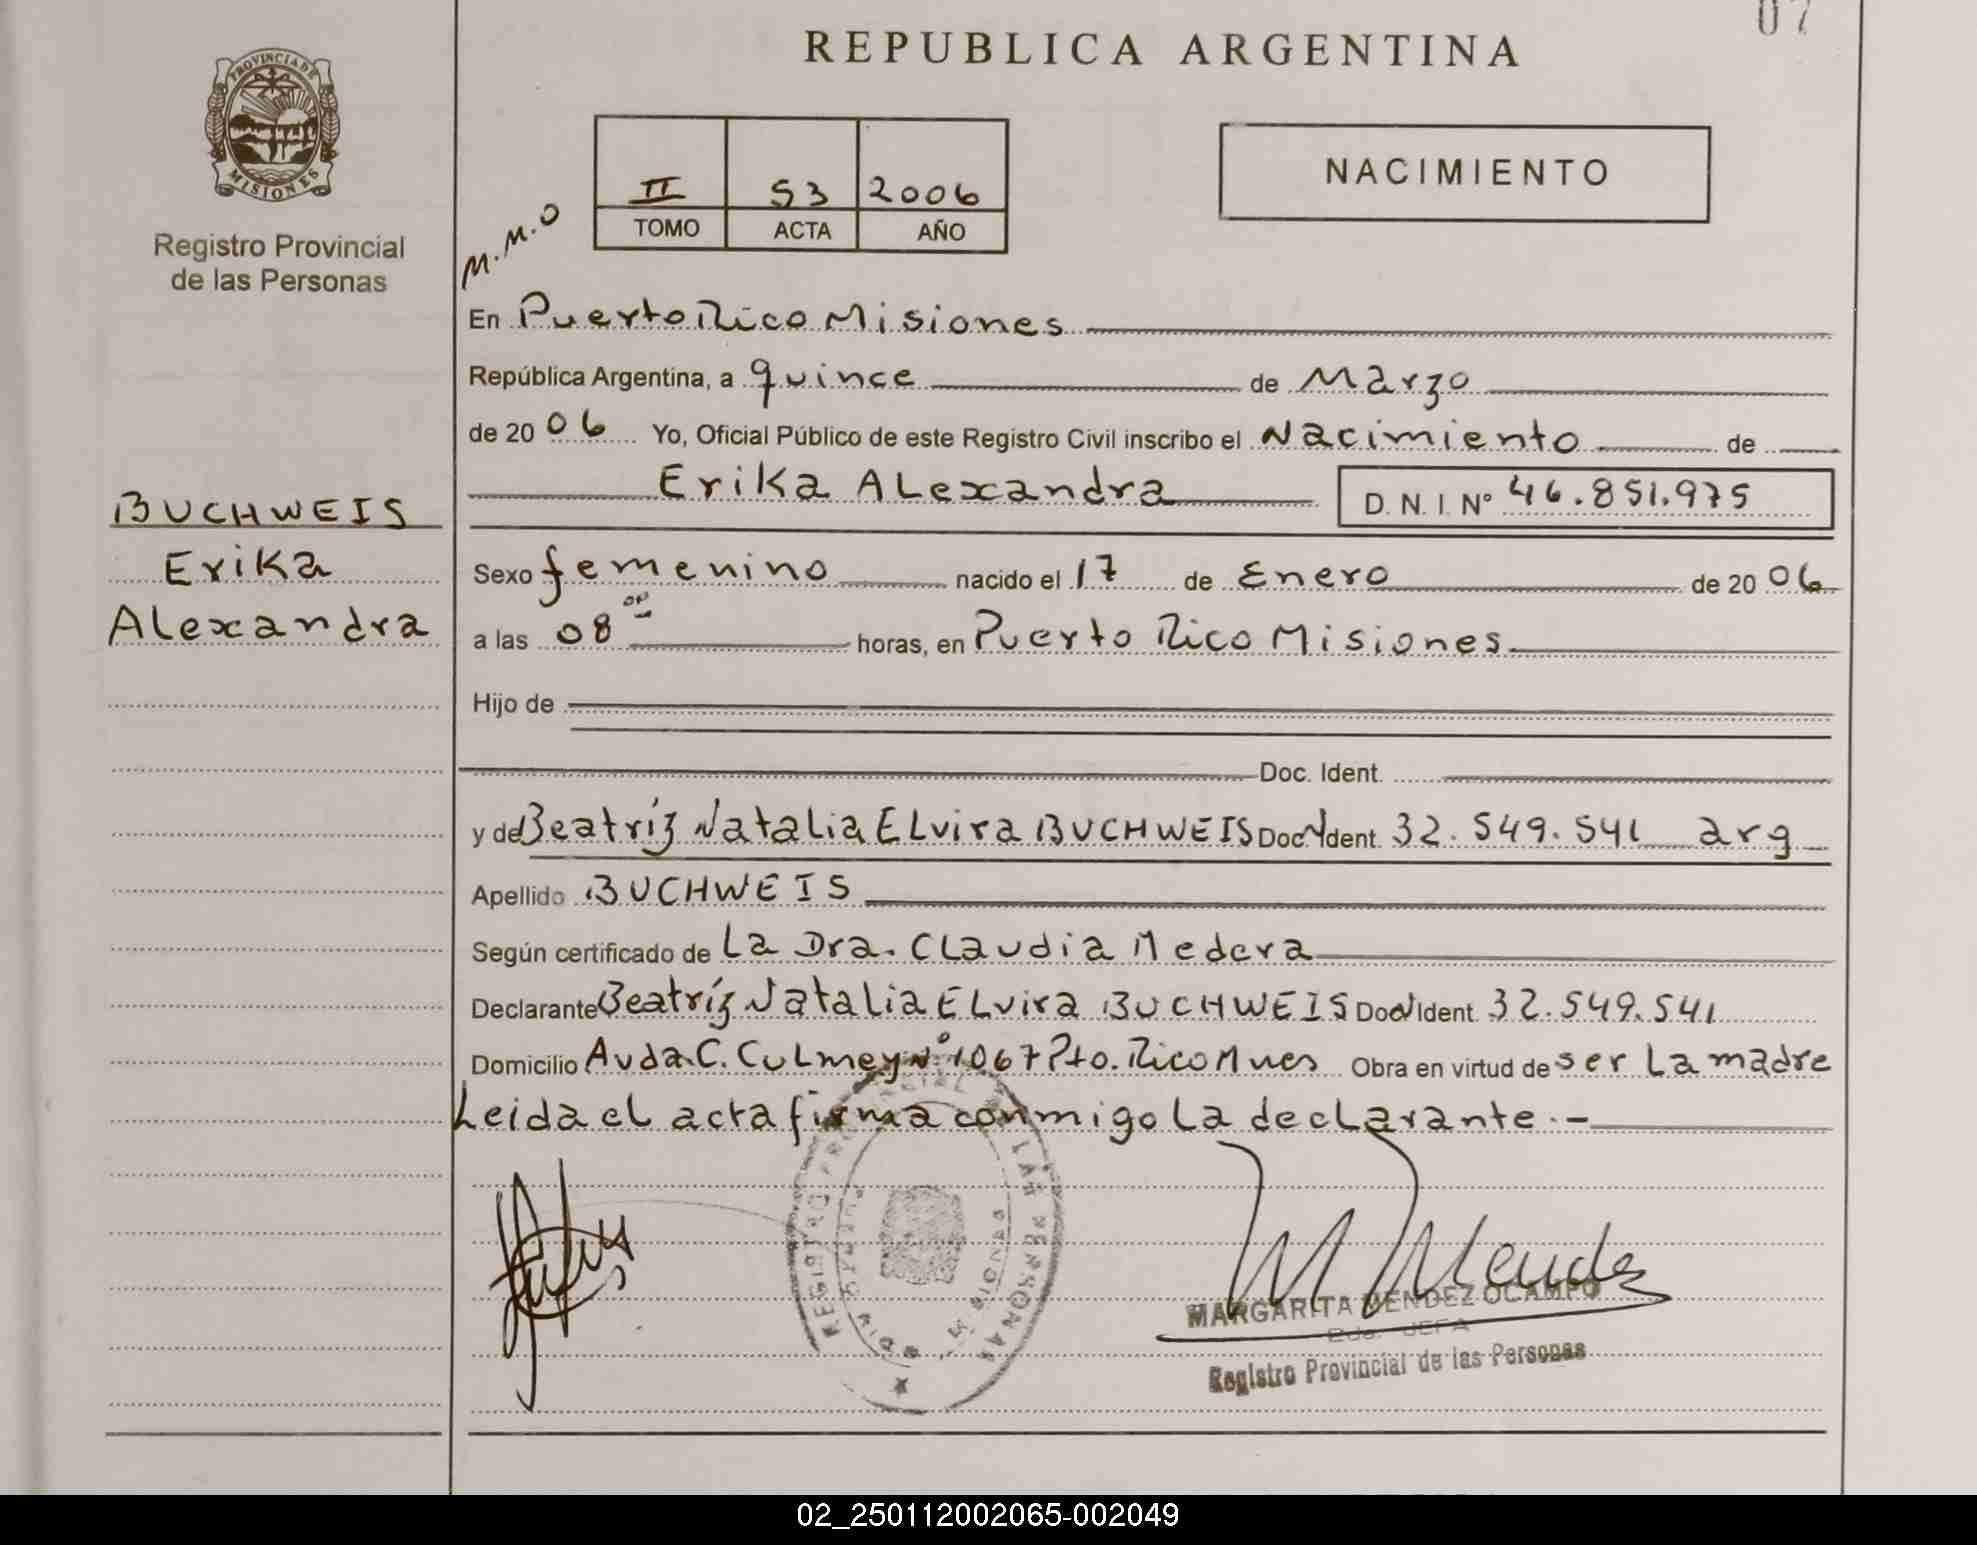 07
REPUBLICA ARGENTINA
PROVINCIA DE
MISIONES
Registro Provincial
de las Personas
II 53 2006
TOMO ACTA AÑO
NACIMIENTO
M.M.O
En Puerto Rico Misiones
República Argentina, a quince de Marzo
de 20 06 Yo, Oficial Público de este Registro Civil inscribo el Nacimiento de
Erika Alexandra D. N. I. Nº 46.851.975
BUCHWEIS
Erika
Alexandra
Sexo femenino nacido el 17 de Enero de 20 06
a las 08 00 horas, en Puerto Rico Misiones
Hijo de
Doc. Ident.
y de Beatríz Natalia Elvira BUCHWEIS Doc. Ident. 32.549.541 arg
Apellido BUCHWEIS
Según certificado de La Dra. Claudia Medera
Declarante Beatríz Natalia Elvira BUCHWEIS Doc. Ident. 32.549.541
Domicilio Avda. C. Culmey Nº 1067 Pto. Rico Mnes Obra en virtud de ser la madre
Leida el acta firma conmigo la declarante.-
REGISTRO PROVINCIAL DE LAS PERSONAS
MISIONES
M Mendez
MARGARITA MENDEZ OCAMPO
JEFA
Registro Provincial de las Personas
02_250112002065-002049